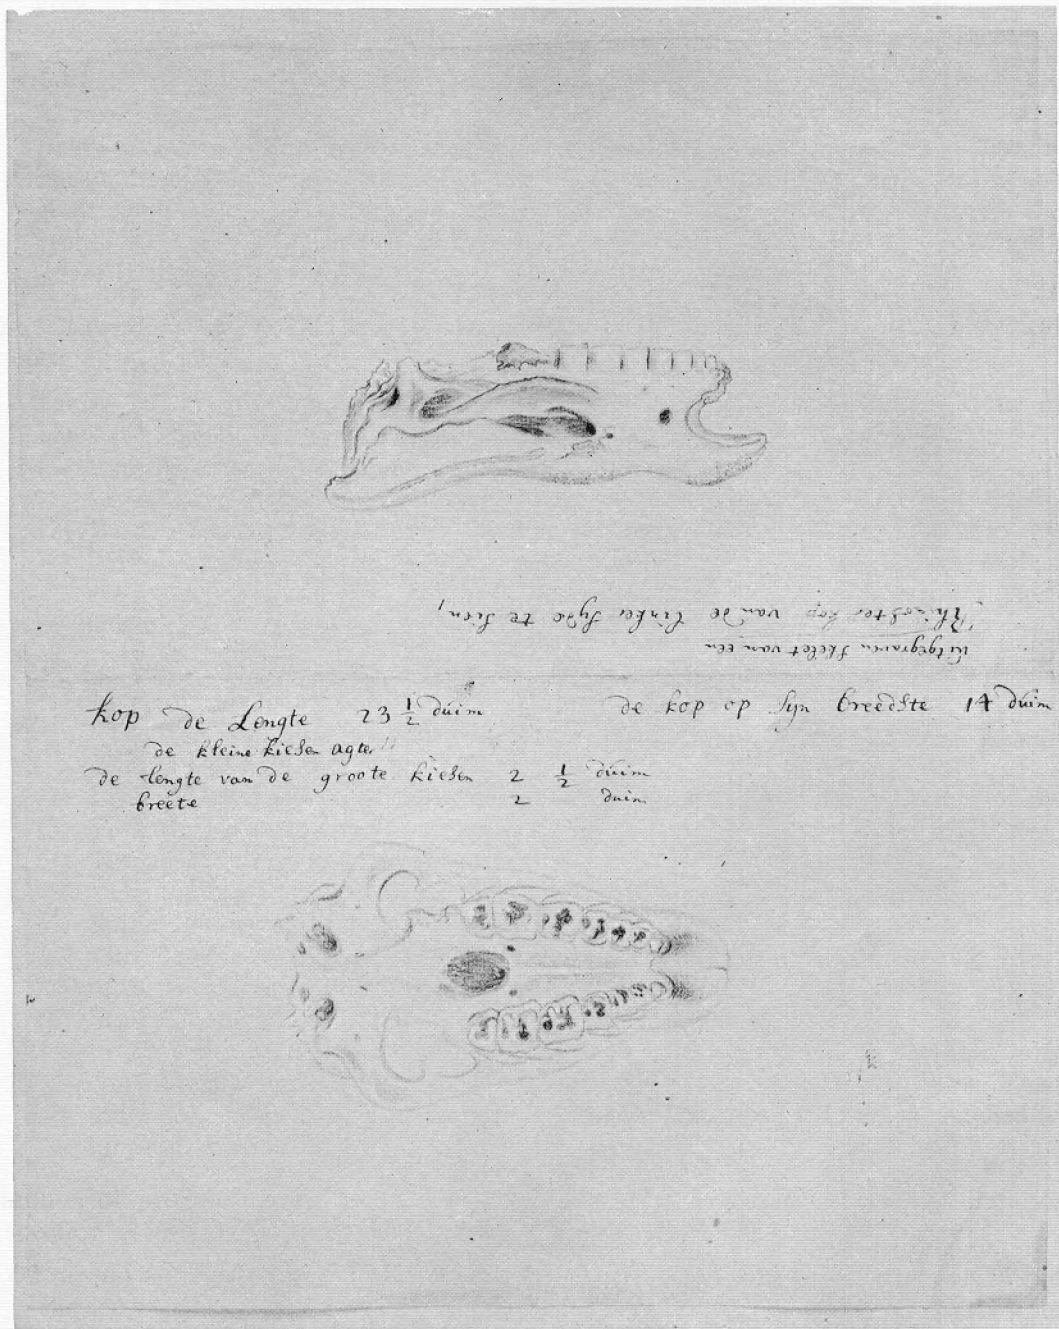 Uitgegraven Skelet van een
Rhinoster kop van de linker syde te sien,
kop de Lengte 23 1/2 duim
de kop op syn breedste 14 duim
de kleine kiesen agter
de lengte van de groote kiesen 2 1/2 duim
breete 2 duim